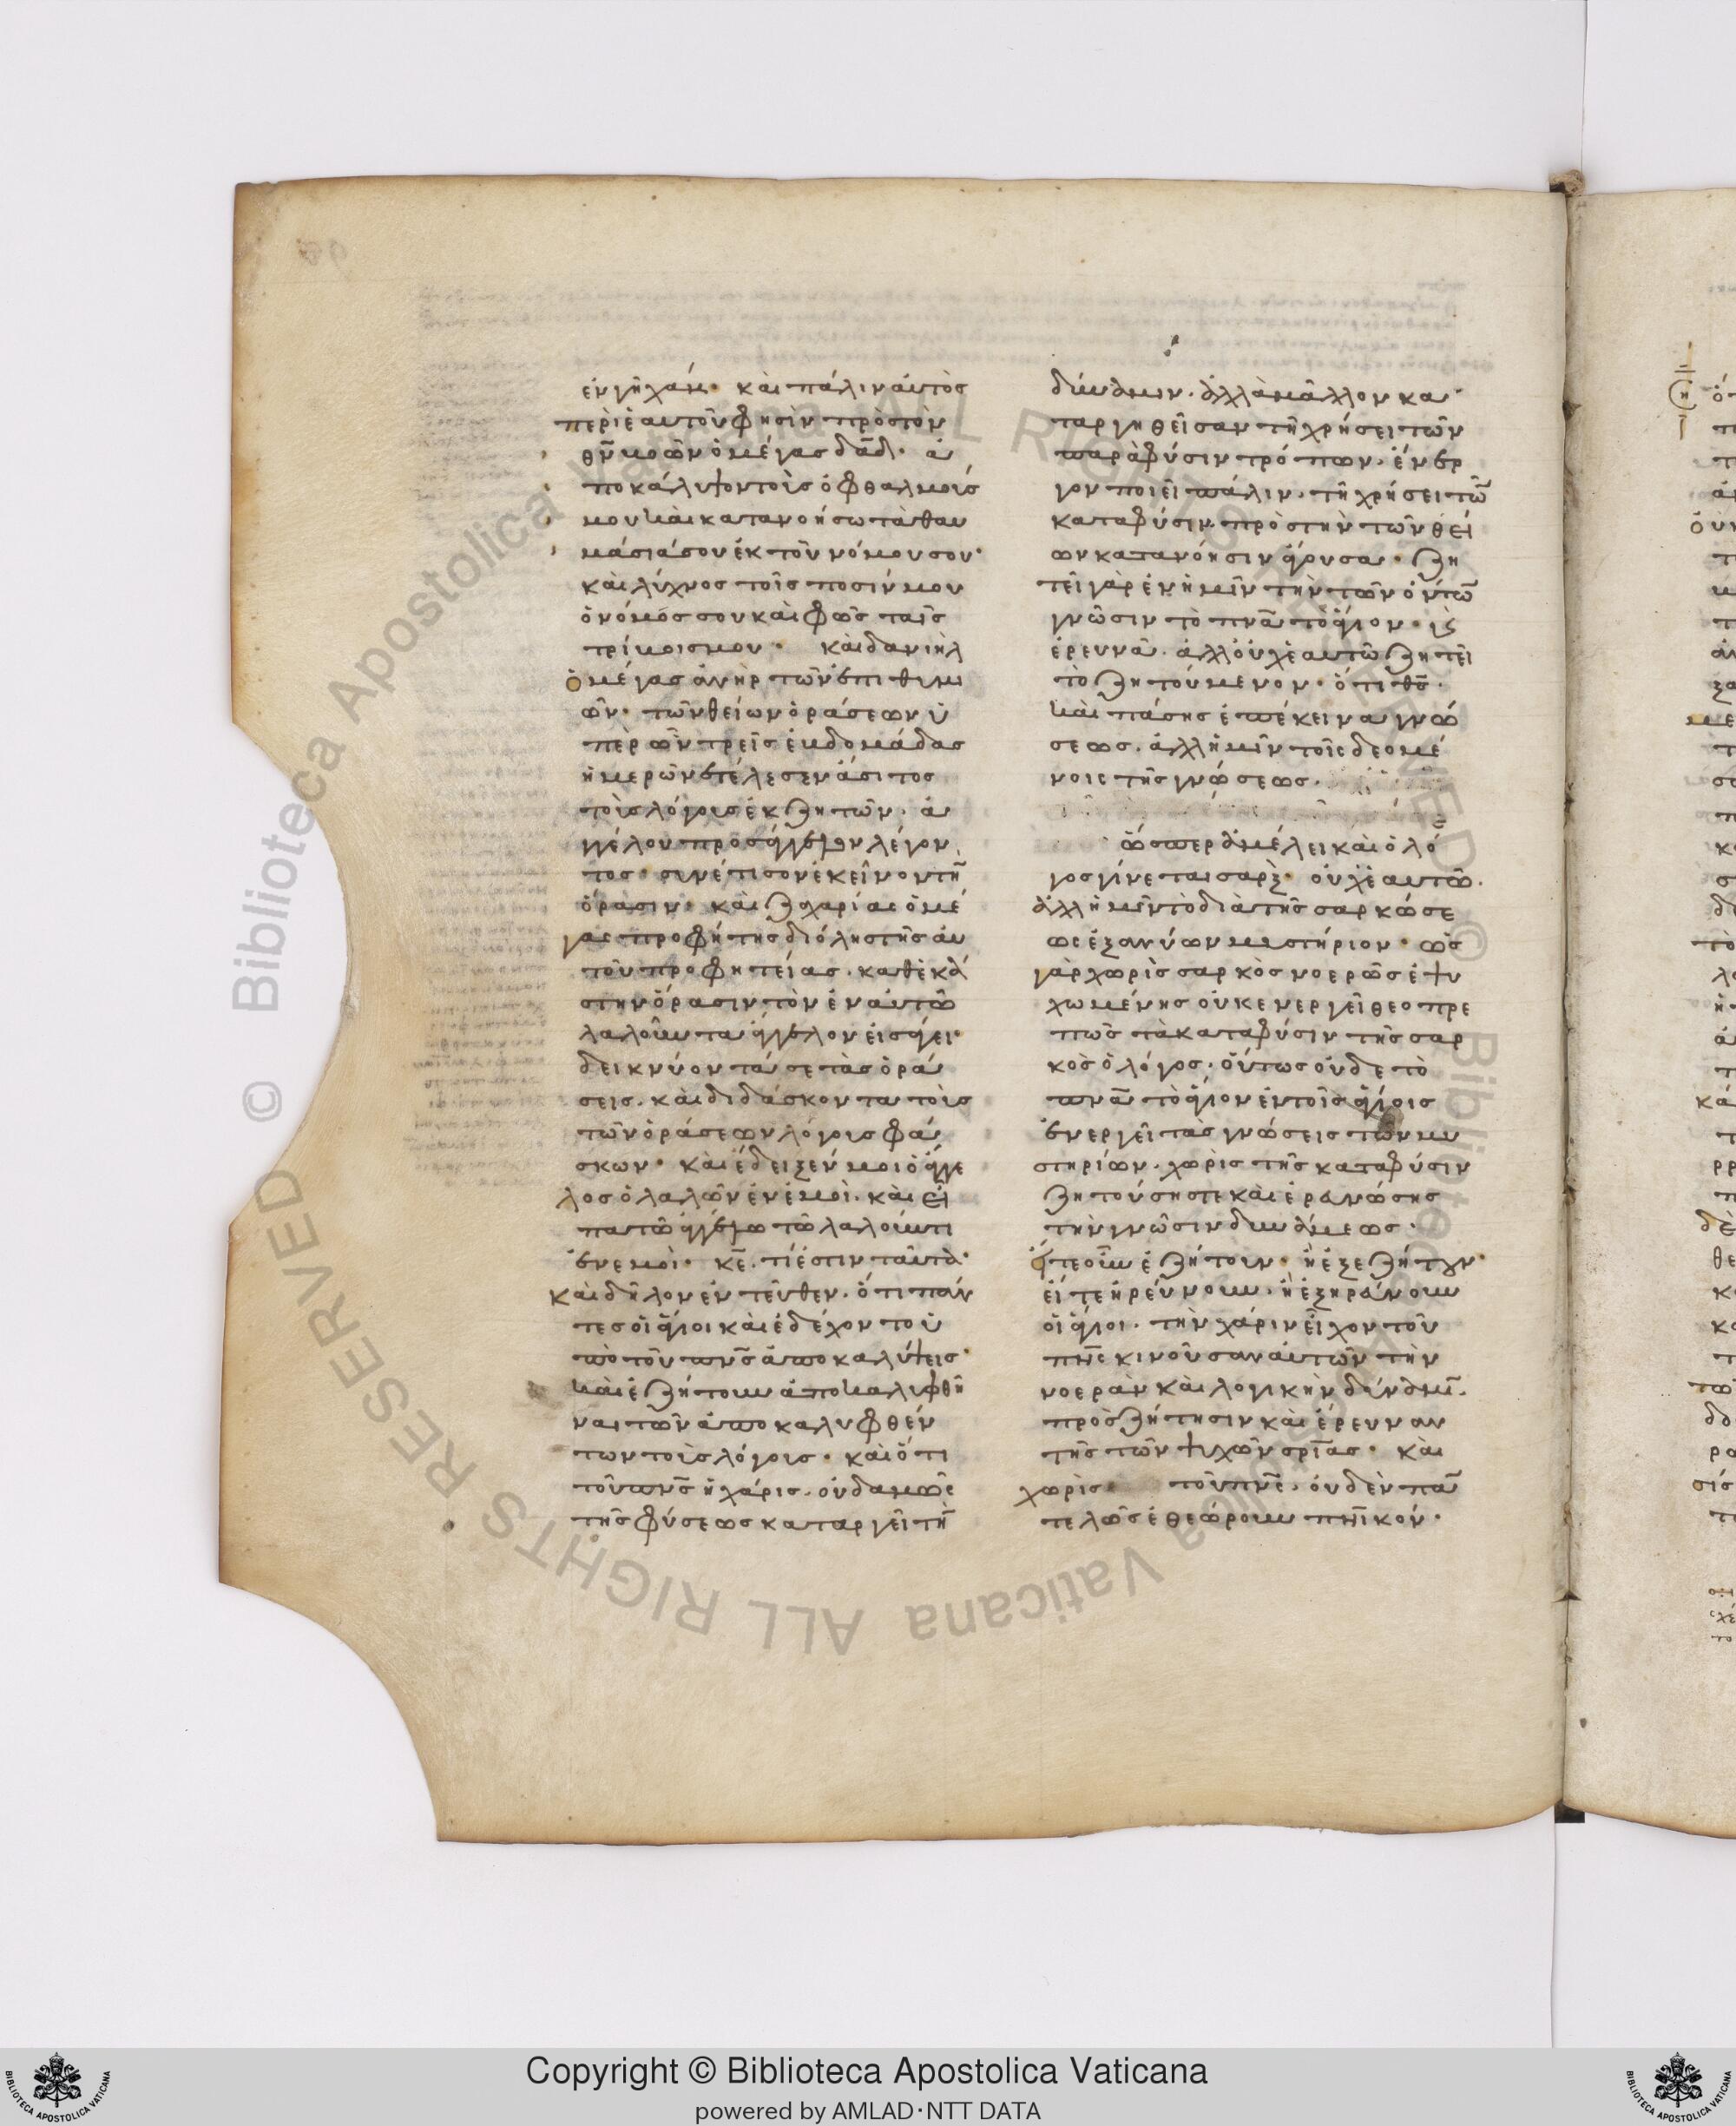 ἐν γῆ χάμ· καὶ πάλιν αὐτὸς
περὶ ἑαυτοῦ φησὶν πρὸς τὸν
θ̅ν̅ βοῶν ὁ μέγας δ̅α̅δ̅· ἀ
ποκάλυψον τοὺς ὀφθαλμούς
μου καὶ κατανοήσω τὰ θαυ
μάσιά σου ἐκ τοῦ νόμου σου·
καὶ λύχνος τοῖς ποσίν μου
ὁ νόμός σου καὶ φῶς ταῖς
τρίβοις μου· καὶ δανιὴλ
ὁ μέγας ἀνὴρ τῶν ἐπιθυμι
ῶν· τῶν θείων ὁράσεων ὑ
πὲρ ὧν τρεῖς ἑβδομάδας
ἡμερῶν ἐτέλεσεν ἄσιτος
τοὺς λόγους ἐκζητῶν· ἀ
γγέλου πρὸς ἄγγελον λέγον
τος· συνέτισον ἐκεῖνον τὴν
ὅρασιν· καὶ ζαχαρίας ὁ μέ
γας προφήτης δι' ὅλης τῆς αὐ
τοῦ προφητείας· καθ' ἑκά
στην ὅρασιν τὸν ἐν αὐτῶ
λαλοῦντα ἄγγελον εἰσάγει·
δεικνύοντά τε τὰς ὁρά
σεις· καὶ διδάσκοντα τοὺς
τῶν ὁράσεων λόγους φά
σκων· καὶ ἔδειξέν μοι ὁ ἄγγε
λος ὁ λαλῶν ἐν ἐμοὶ· καὶ εἶ
πα τῶ ἀγγέλω τῶ λαλοῦντι
ἐν ἐμοὶ· κ̅ε̅· τί ἐστιν ταῦτα·
καὶ δῆλον ἐντεῦθεν· ὅτι πάν
τες οἱ ἅγιοι καὶ ἐδέχοντο ὑ
πὸ τοῦ π̅ν̅ς̅ ἀποκαλύψεις·
καὶ ἐζήτουν ἀποκαλυφθῆ
ναι τῶν ἀποκαλυφθέν
των τοὺς λόγους· καὶ ὅτι
τοῦ π̅ν̅ς̅ ἡ χάρις· οὐδαμῶς
τῆς φύσεως καταργεῖ τὴν
δύναμιν· ἀλλὰ μᾶλλον κα
ταργηθεῖσαν τῆ χρήσει τῶν
παρὰ φύσιν τρόπων· ἐνερ
γὸν ποιεῖ πάλιν· τῆ χρήσει τῶν
κατὰ φύσιν πρὸς τὴν τῶν θεί
ων κατανόησιν ἄγουσα· ζη
τεῖ γὰρ ἐν ἡμῖν τὴν τῶν ὄντων
γνῶσιν τὸ π̅ν̅α̅ τὸ ἅγιον· καὶ
ἐρευνᾶ· ἀλλ' οὐχ ἑαυτῶ ζητεῖ
τὸ ζητούμενον· ὅτι θ̅ς̅·
καὶ πάσης ἐπέκεινα γνώ
σεως· ἀλλ' ἡμῖν τοῖς δεομέ
νοις τῆς γνώσεως·
ὥσπερ ἀμέλει καὶ ὁ λό
γος γίνεται σὰρξ· οὐχ ἑαυτῶ·
ἀλλ' ἡμῖν τὸ διὰ τῆς σαρκώσε
ως ἐξανύων μυστήριον· ὡς
γὰρ χωρὶς σαρκὸς νοερῶς ἐψυ
χωμένης οὐκ ἐνεργεῖ θεοπρε
πῶς τὰ κατὰ φύσιν τῆς σαρ
κὸς ὁ λόγος· οὕτως οὐδὲ τὸ
π̅ν̅α̅ τὸ ἅγιον ἐν τοῖς ἁγίοις
ἐνεργεῖ τὰς γνώσεις τῶν μυ
στηρίων· χωρὶς τῆς κατὰ φύσιν
ζητούσης τε καὶ ἐρευνώσης
τὴν γνῶσιν δυνάμεως·
εἴτε οὖν ἐζήτουν· ἢ ἐξεζήτουν·
εἴτε ἠρεύνουν· ἢ ἐξηρεύνουν
οἱ ἅγιοι· τὴν χάριν εἶχον τοῦ
π̅ν̅ς̅ κινοῦσαν αὐτῶν τὴν
νοερὰν καὶ λογικὴν δύναμιν·
πρὸς ζήτησιν καὶ ἔρευναν
τῆς τῶν ψυχῶν σ̅ρ̅ί̅ας· καὶ
χωρὶς τοῦ π̅ν̅ς̅· οὐδὲν παν
τελῶς ἐθεώρουν π̅ν̅ικόν·
© Biblioteca Apostolica Vaticana ALL RIGHTS RESERVED
© Biblioteca Apostolica Vaticana ALL RIGHTS RESERVED
Copyright © Biblioteca Apostolica Vaticana
powered by AMLAD·NTT DATA
BIBLIOTECA APOSTOLICA VATICANA
BIBLIOTECA APOSTOLICA VATICANA